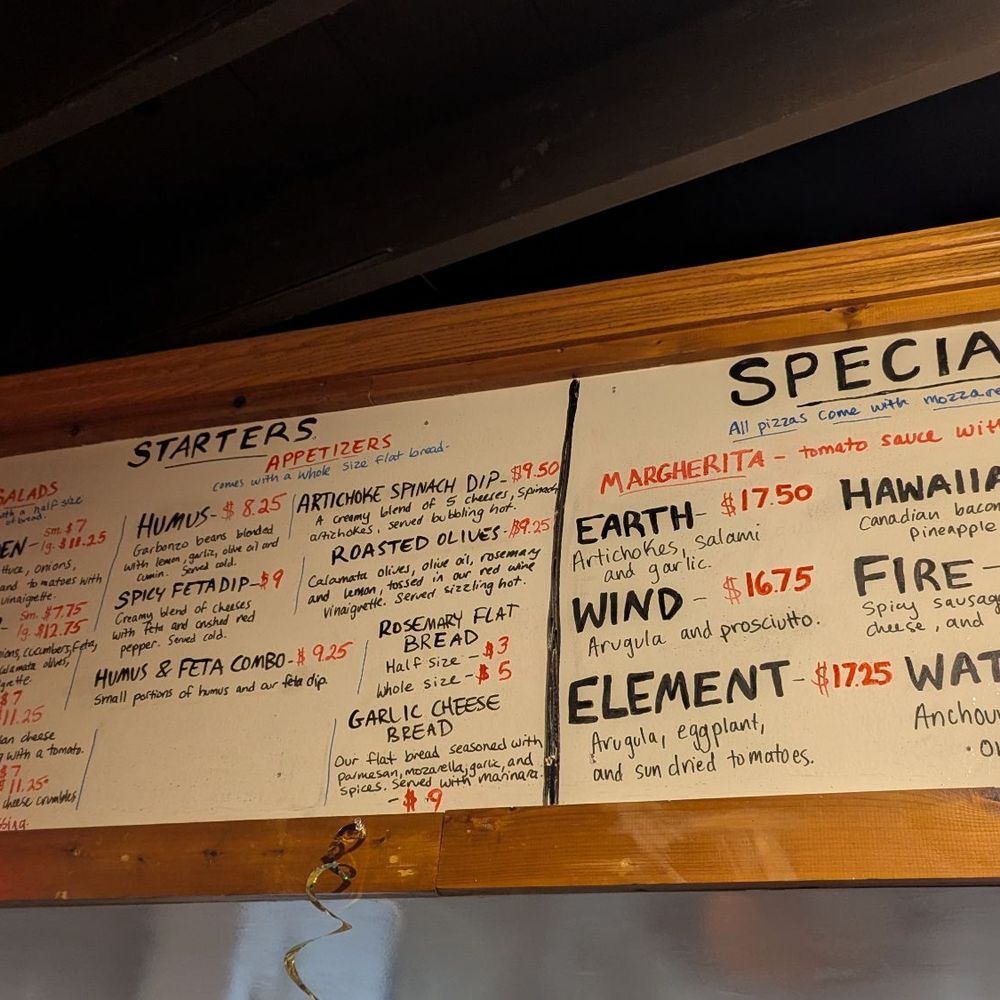 STARTERS
SALADS
with a half size
bread.
sm. $7
EN- lg. $11.25
onions,
and tomatoes with
vinaigrette.
sm. $7.75
lg. $12.75
cucumbers, Feta,
calamata olives,
$7
11.25
cheese
with a tomato.
$7
$11.25
cheese crumbles
APPETIZERS
comes with a whole size flat bread-
HUMUS- $8.25
Garbonzo beans blended
with lemon, garlic, olive oil and
cumin. Served cold.
SPICY FETA DIP- $9
Creamy blend of cheeses
with feta and crushed red
pepper. Served cold.
HUMUS & FETA COMBO- $9.25
Small portions of humus and our feta dip.
ARTICHOKE SPINACH DIP- $9.50
A creamy blend of 5 cheeses, Spinach,
artichokes, served bubbling hot.
ROASTED OLIVES- $9.25
Calamata olives, olive oil, rosemary
and lemon, tossed in our red wine
Vinaigrette. Served sizzling hot.
ROSEMARY FLAT
BREAD
Half size - $3
Whole size - $5
GARLIC CHEESE
BREAD
Our flat bread seasoned with
parmesan, mozarella, garlic, and
spices. Served with marinara.
- $9
SPECIA
All pizzas come with mozzare
MARGHERITA - tomato sauce with
EARTH- $17.50
Artichokes, salami
and garlic.
WIND - $16.75
Arugula and prosciutto.
ELEMENT- $17.25
Arugula, eggplant,
and sun dried tomatoes.
HAWAIIA
Canadian bacon
pineapple
FIRE-
Spicy sausag
cheese, and
WAT
Anchov